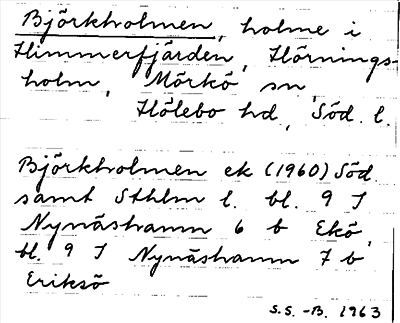 Björkholmen, holme i
Himmerfjärden, Hörnings-
holm, Mörkö sn,
Hölebo hd, Söd. l.
Björkholmen ek (1960) Söd.
samt Sthlm l. bl. 9 I
Nynäshamn 6 b Ekö,
bl. 9 I Nynäshamn 7 b
Eriksö
S.S. -B. 1963